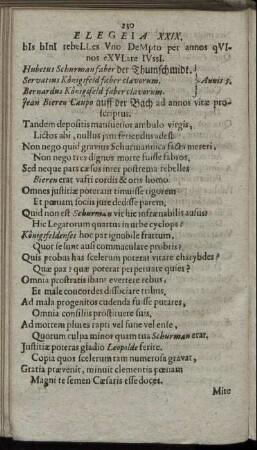 230
ELEGEIA XXIX.
bIs bInI rebeLLes Vno DeMpto per annos qVI-
nos eXVLare IVssI.
Hubetus Schurman faber der Thumschmidt.
Servatius Königsfeld faber clavorum. Annis 5.
Bernardus Königsfeld faber clavorum.
Jean Bieren Caupo auff der Bach ad annos vitæ pro-
scriptus.
Tandem depositis mansuetior ambulo virgis,
Lictos abi, nullus jam feriendus adest.
Non nego quid gravius Schurmannica facta meseri,
Non nego tres dignos morte fuisse fabros,
Sed neque pars cæsos inter postrema rebelles
Bieren erat vafri cordis & oris homo.
Omnes justitiæ poterant timuisse rigorem
Et pœnam sociis jure dedisse parem,
Quid non est Schurman vic hic infranabilis ausus?
Hic Legatorum quartus in urbe cyclops?
Königsfeldenses hoc par ignobile fratrum,
Quot se sunt ausi commaculare probris?
Quis probus has scelerum poterat vitare charybdes?
Quæ pax? quæ poterat perpetuare quies?
Omnia prostratis ibant evertere rebus,
Et male concordes dissociare tribus,
Ad mala progenitor cudenda fuisse putares,
Omnia consiliis prostituere suis,
Ad mortem plures rapti vel sunt vel ense,
Quorum culpa minor quam tua Schurman erat,
Justitiæ poteras gladio Leopolde ferire.
Copia quos scelerum tam numerosa gravat,
Gratia prævenit, minuit clementia pœnam
Magni te semen Cæsaris esse doces.
Mite